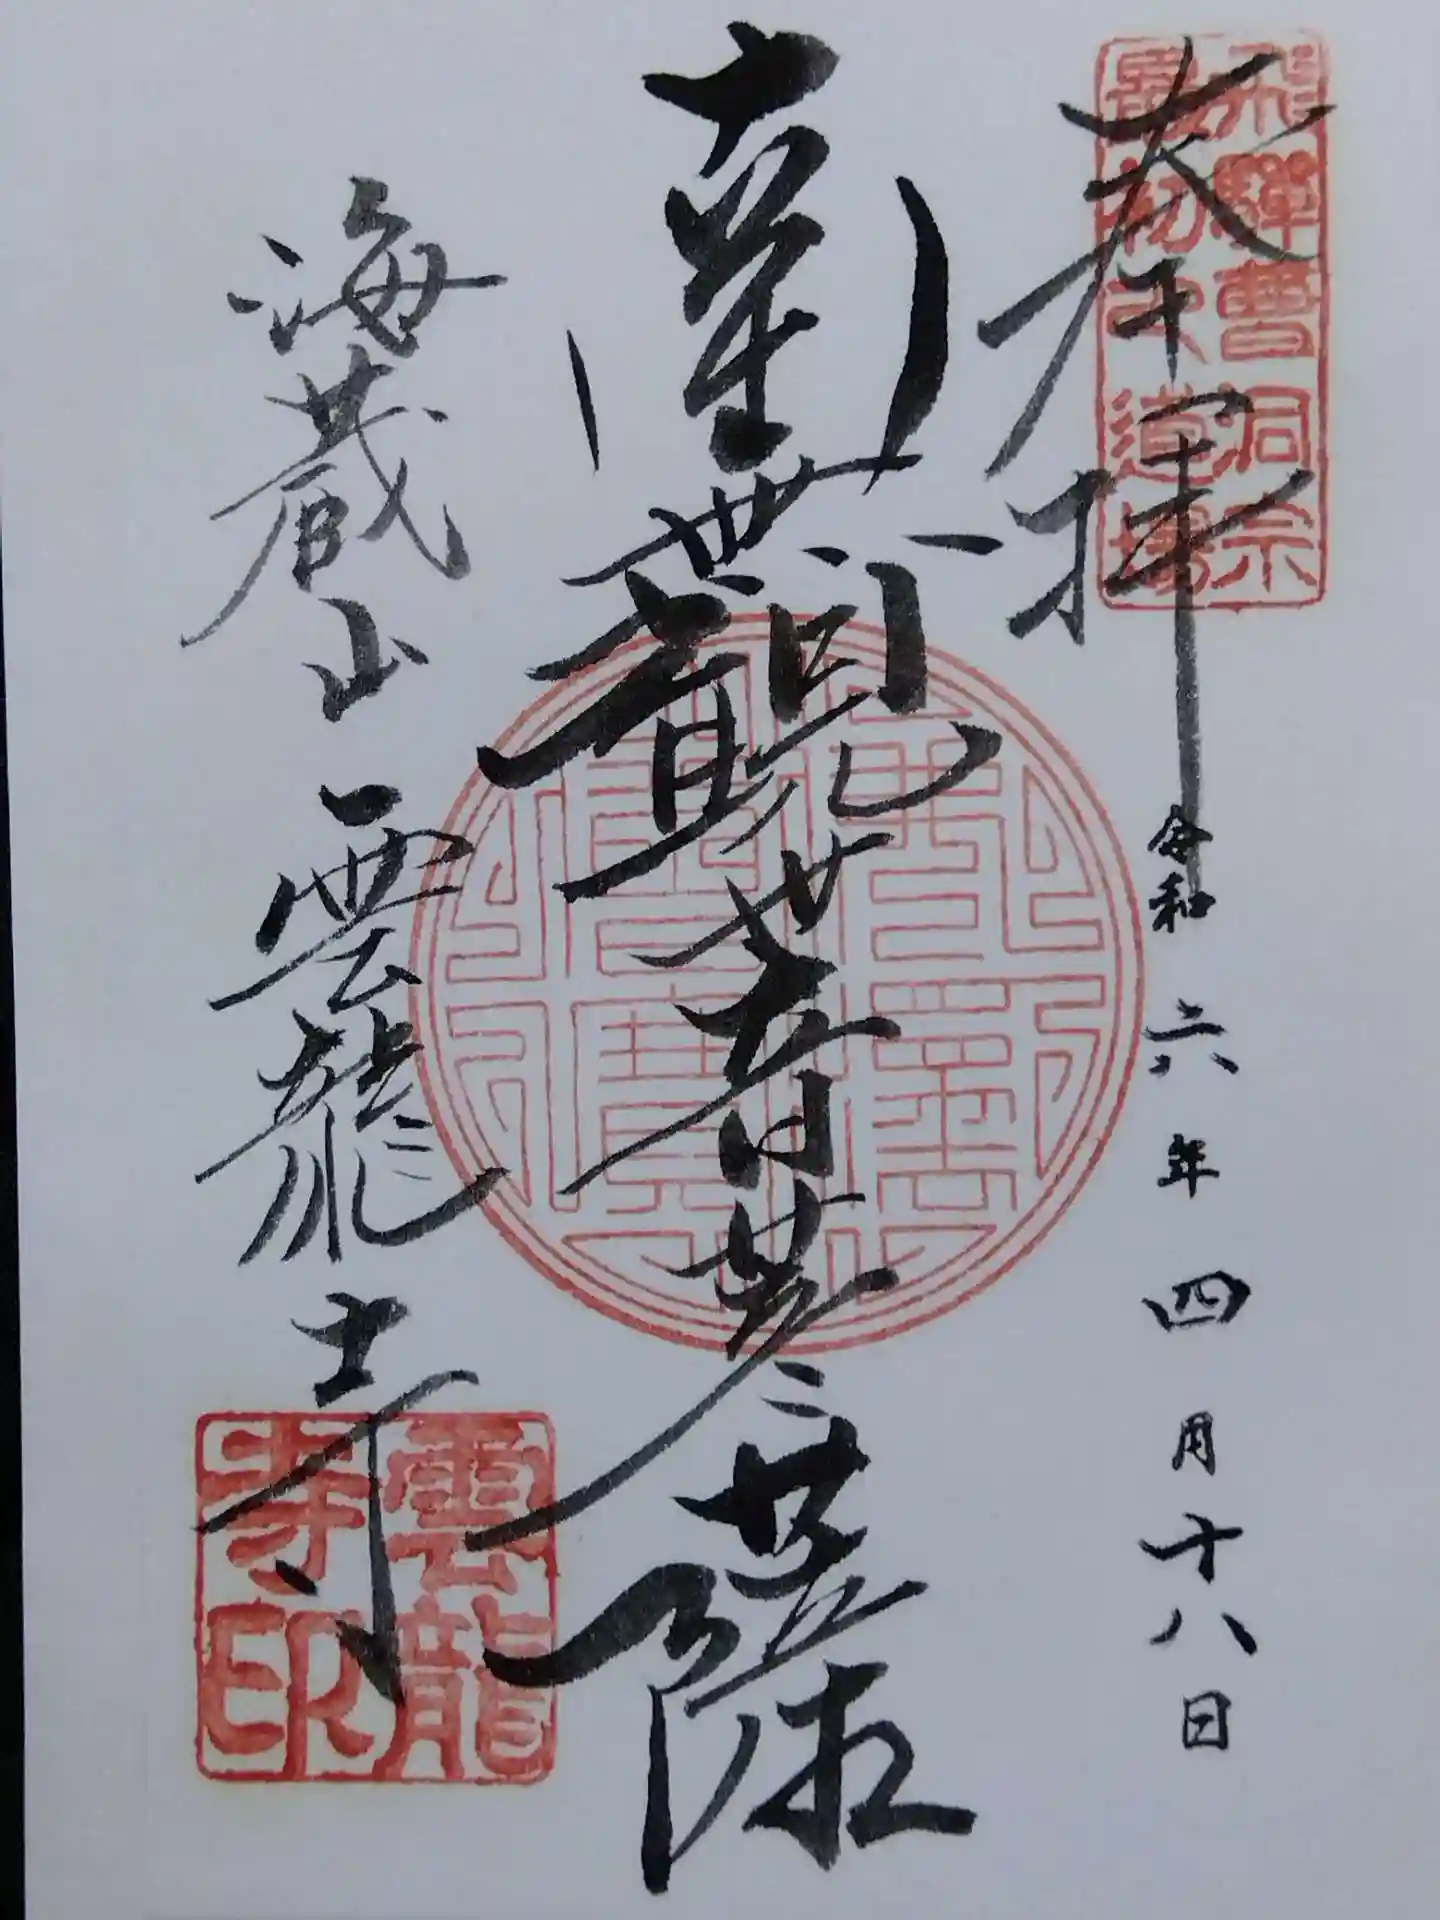 飛驒曹洞宗
最初之道場
奉拝
令和六年四月十八日
南無觀世音菩薩
海蔵山 雲龍寺
雲龍
寺印